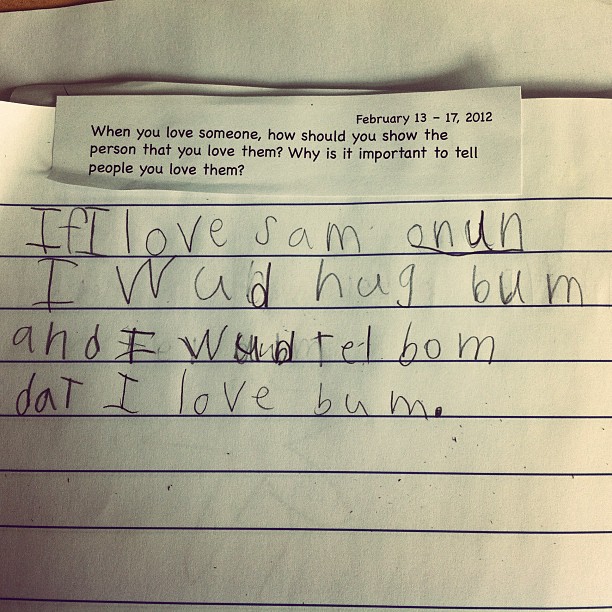 February 13 - 17, 2012
When you love someone, how should you show the
person that you love them? Why is it important to tell
people you love them?
If I love sam onun
I Wud hug bum
and I Wud tel bom
dat I love bum.